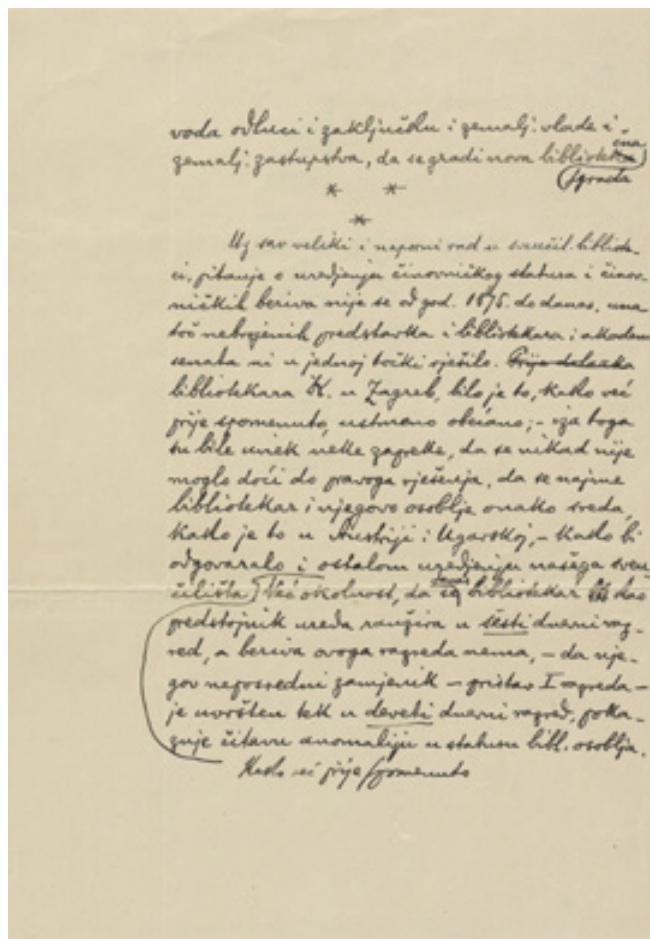 voda odluci i zaključku i zemalj. vlade i
zemalj. zastupstva, da se gradi nova bibliotečna
zgrada
* *
*
Uz sav veliki i naporni rad u sveučil. bibliote-
ci, pitanje o uredjenju činovničkog statusa i činov-
ničkih beriva nije se od god. 1875. do danas, una-
toč nebrojenih predstavka i bibliotekara i akadem.
senata ni u jednoj točki riješilo. Prije dolaska
bibliotekara K. u Zagreb, bilo je to, kako već
prije spomenuto, ustmeno obećano; – iza toga
su bile uviek neke zapreke, da se nikad nije
moglo doći do pravoga rješenja, da se najme
bibliotekar i njegovo osoblje onako sreda,
kako je to u Austriji i Ugarskoj, – kako bi
odgovaralo i ostalom uredjenju našega sveu-
čilišta. Već okolnost, da se bibliotekar kao
predstojnik ureda rangira u šesti dnevni raz-
red, a beriva ovoga razreda nema, – da nje-
gov neposredni zamjenik – pristav I razreda –
je uvršten tek u deveti dnevni razred, poka-
zuje čitavu anomaliju u statusu bibl. osoblja.
Kako već prije spomenuto